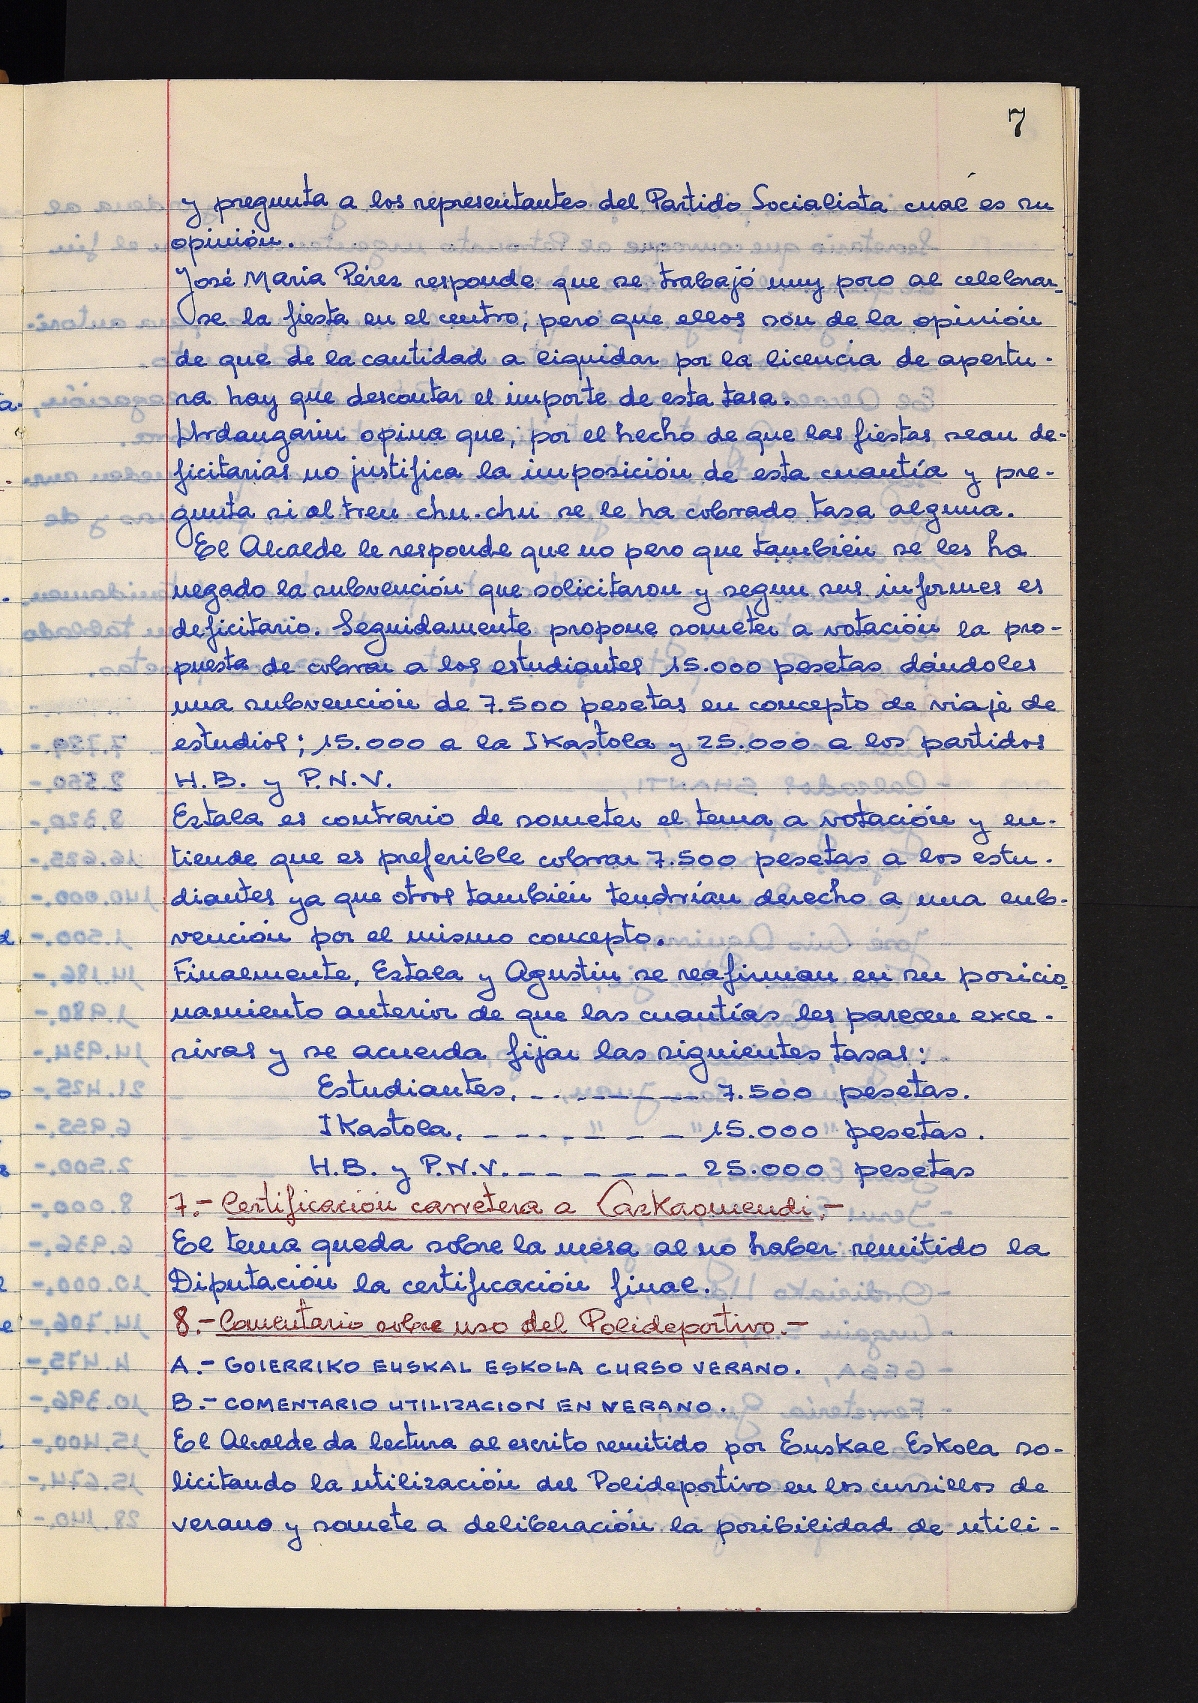 7
y pregunta a los representantes del Partido Socialista cual es su
opinión.
José Maria Pérez responde que se trabajó muy poco al celebrar-
se la fiesta en el centro, pero que ellos son de la opinión
de que de la cantidad a liquidar por la licencia de apertu-
ra hay que descontar el importe de esta tasa.
Urdangarin opina que, por el hecho de que las fiestas sean de-
ficitarias no justifica la imposición de esta cuantía y pre-
gunta si al tren chu-chu se le ha cobrado tasa alguna.
El Alcalde le responde que no pero que también se les ha
negado la subvención que solicitaron y segun sus informes es
deficitario. Seguidamente propone someter a votación la pro-
puesta de cobrar a los estudiantes 15.000 pesetas dándoles
una subvención de 7.500 pesetas en concepto de viaje de
estudios; 15.000 a la Ikastola y 25.000 a los partidos
H.B. y P.N.V.
Estala es contrario de someter el tema a votación y en-
tiende que es preferible cobrar 7.500 pesetas a los estu-
diantes ya que otros también tendrían derecho a una sub-
vención por el mismo concepto.
Finalmente, Estala y Agustin se reafirman en su posicio-
namiento anterior de que las cuantías les parecen exce-
sivas y se acuerda fijar las siguientes tasas:
Estudiantes. - - - - - - - - 7.500 pesetas.
Ikastola. - - - - - - - 15.000 pesetas.
H.B. y P.N.V. - - - - - - 25.000 pesetas
7.- Certificación carretera a Lazkaomendi.-
El tema queda sobre la mesa al no haber remitido la
Diputación la certificación final.
8.- Comentario sobre uso del Polideportivo.-
A.- GOIERRIKO EUSKAL ESKOLA CURSO VERANO.
B.- COMENTARIO UTILIZACION EN VERANO.
El Alcalde da lectura al escrito remitido por Euskal Eskola so-
licitando la utilización del Polideportivo en los cursillos de
verano y somete a deliberación la posibilidad de utili-